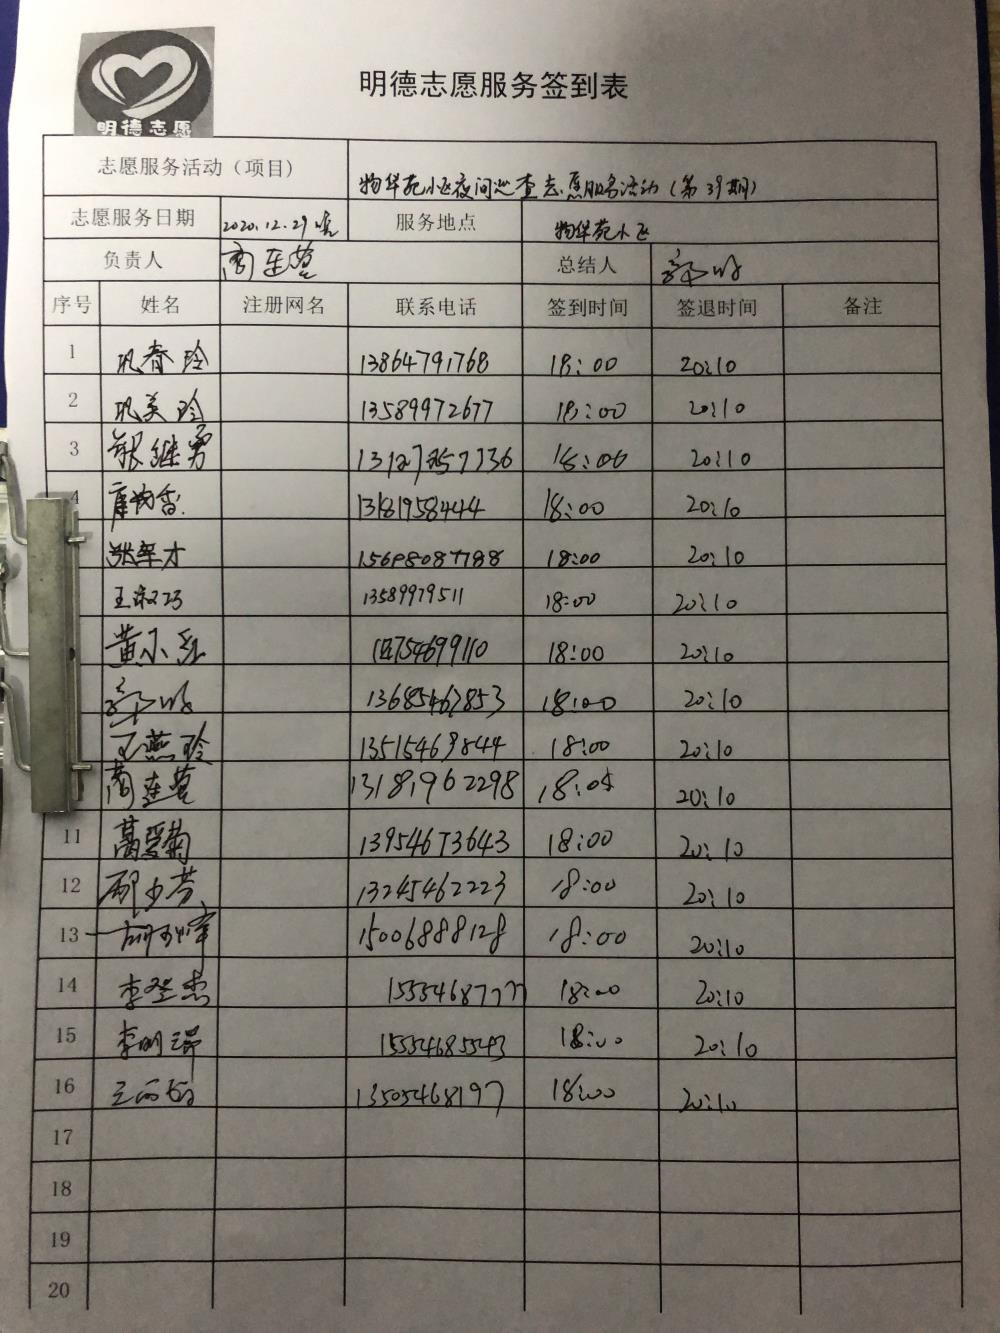 明德志愿
明德志愿服务签到表
志愿服务活动（项目） 物华苑小区夜间巡查志愿服务活动（第39期）
志愿服务日期 2020.12.29晚 服务地点 物华苑小区
负责人 商连营 总结人
序号 姓名 注册网名 联系电话 签到时间 签退时间 备注
1 巩春玲 13864791768 18:00 20:10
2 巩美玲 13589972677 18:00 20:10
3 张继勇 13127357736 18:00 20:10
4 18:00 20:10
张军才 15698087788 18:00 20:10
王淑巧 13589979511 18:00 20:10
黄小红 18:00 20:10
13685462853 18:00 20:10
王燕玲 13515469844 18:00 20:10
商连营 13181962298 18:05 20:10
11 葛爱菊 13954673643 18:00 20:10
12 邴少芳 13245462223 18:00 20:10
13 15006888128 18:00 20:10
14 李圣杰 15554687777 18:00 20:10
15 李明瑞 15554685543 18:00 20:10
16 13505468197 18:00 20:10
17
18
19
20